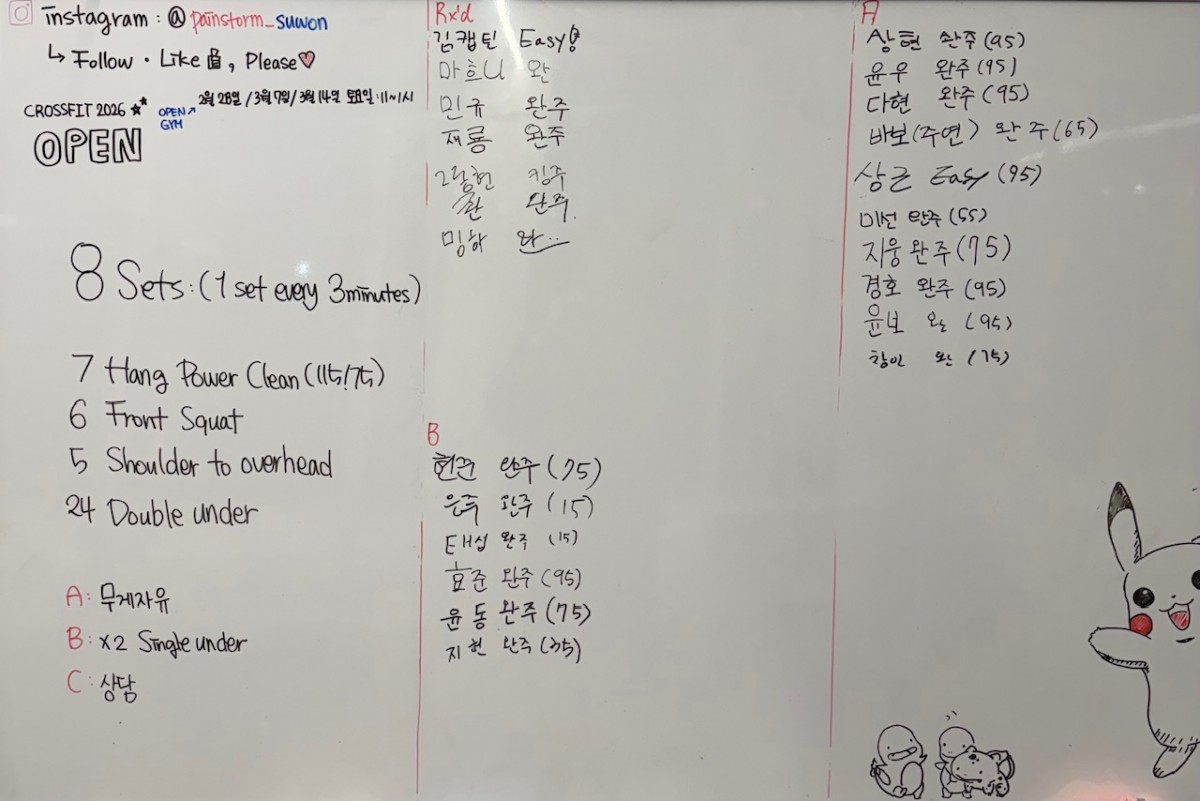 instagram : @painstorm_suwon
↳ Follow · Like 👍, Please♡
CROSSFIT 2026
OPEN
OPEN↗
GYM
2월 28일 / 3월 7일 / 3월 14일 토요일 : 11~1시
8 Sets : (1 set every 3minutes)
7 Hang Power Clean (115/75)
6 Front Squat
5 Shoulder to overhead
24 Double under
A : 무게자유
B : x2 Single under
C : 상담
Rx'd
김캡틴 Easy!
마흐니 완
민규 완주
재룡 완주
킹주
완주
밍하 완..
B
현근 완주 (75)
은주 완주 (15)
태섭 완주 (15)
효준 완주 (95)
윤동 완주 (75)
지현 완주 (35)
A
상현 완주 (95)
윤우 완주 (95)
다현 완주 (95)
바보(주연) 완주 (65)
상근 Easy (95)
미선 완주 (55)
지웅 완주 (75)
경호 완주 (95)
윤보 완 (95)
창인 완 (75)